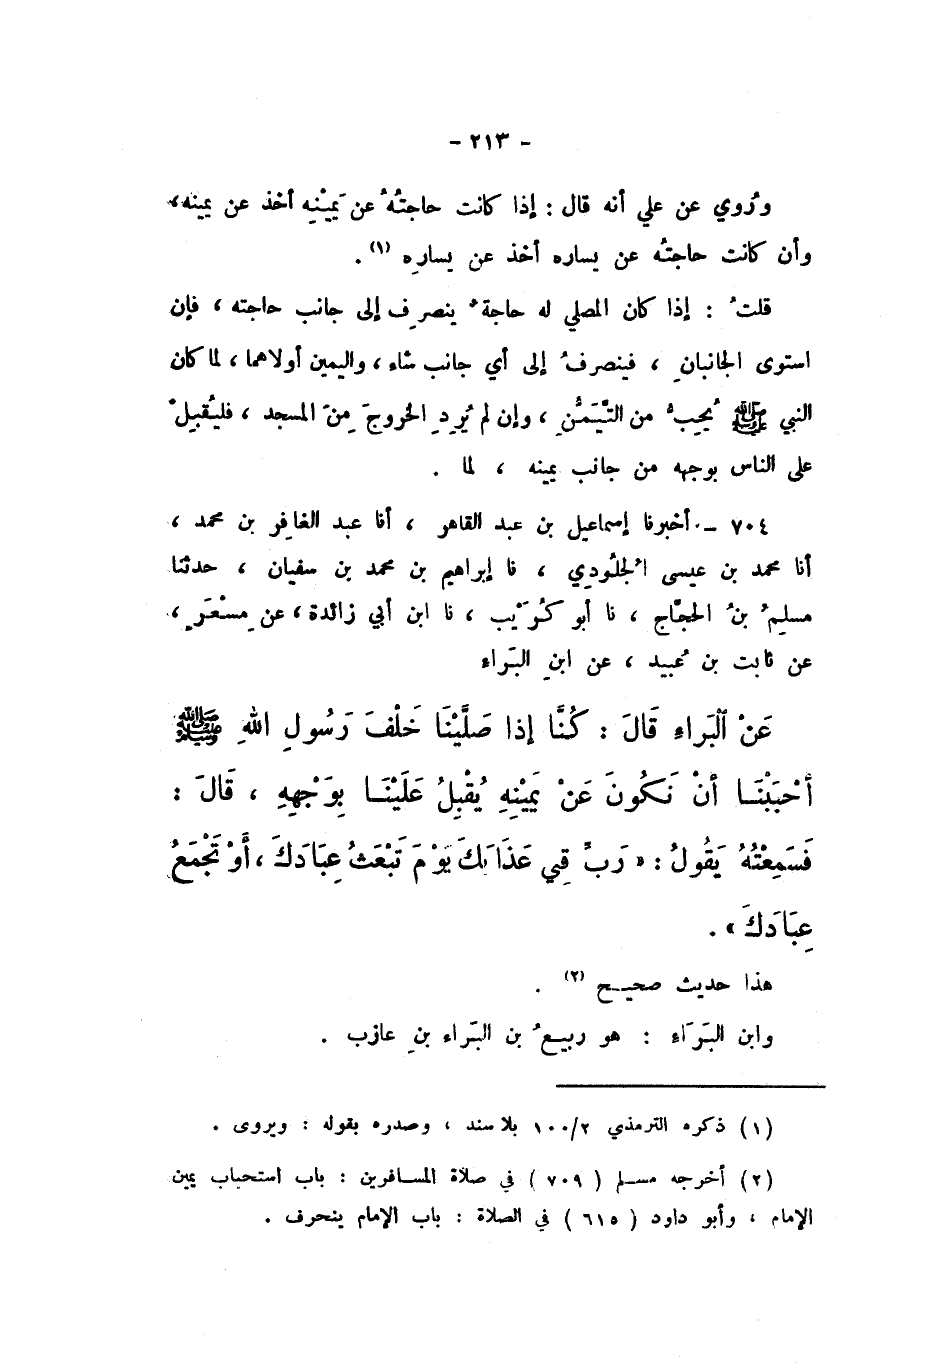 - ٢١٣ -
ورُوي عن علي أنه قال : إذا كانت حاجتُهُ عن يَمِيْنِه أخذ عن يمينه ،
وأن كانت حاجتُه عن يساره أخذ عن يسارِه (١) .
قلتُ : إذا كان المصلي له حاجةٌ ينصرِف إلى جانب حاجته ، فإن
استوى الجانبانِ ، فينصرفُ إلى أي جانب شاء ، واليمين أولاهما ، لما كان
النبي ﷺ يُحِبُّ من التَّيَمُّنِ ، وإن لم يُرِدِ الخروجَ مِنَ المسجد ، فليُقبِلْ
على الناس بوجهه من جانب يمينه ، لما .
٧٠٤ - أخبرنا إسماعيل بن عبد القاهر ، أنا عبد الغافِر بن محمد ،
أنا محمد بن عيسى الجُلُودِي ، نا إبراهيم بن محمد بن سفيان ، حدثنا
مسلِمُ بنُ الحجَّاج ، نا أبو كُرَيْب ، نا ابن أبي زائدة ، عن مِسْعَرٍ ،
عن ثابت بن عُبيد ، عن ابنِ البَراء
عَنْ الْبَراءِ قَالَ : كُنَّا إذا صَلَّيْنَا خَلْفَ رَسُولِ اللهِ ﷺ
أَحْبَبْنَا أَنْ نَكُونَ عَنْ يَمِيْنِهِ يُقْبِلُ عَلَيْنَا بِوَجْهِهِ ، قَالَ :
فَسَمِعْتُهُ يَقُولُ : « رَبِّ قِنِي عَذَابَكَ يَوْمَ تَبْعَثُ عِبَادَكَ ، أَوْ تَجْمَعُ
عِبَادَكَ » .
هذا حديث صحيح (٢) .
وابن البَرَاء : هو ربيعُ بن البَراء بنِ عازب .
(١) ذكره الترمذي ١٠٠/٢ بلا سند ، وصدره بقوله : ويروى .
(٢) أخرجه مسلم ( ٧٠٩ ) في صلاة المسافرين : باب استحباب يمين
الإمام ، وأبو داود ( ٦١٥ ) في الصلاة : باب الإمام ينحرف .